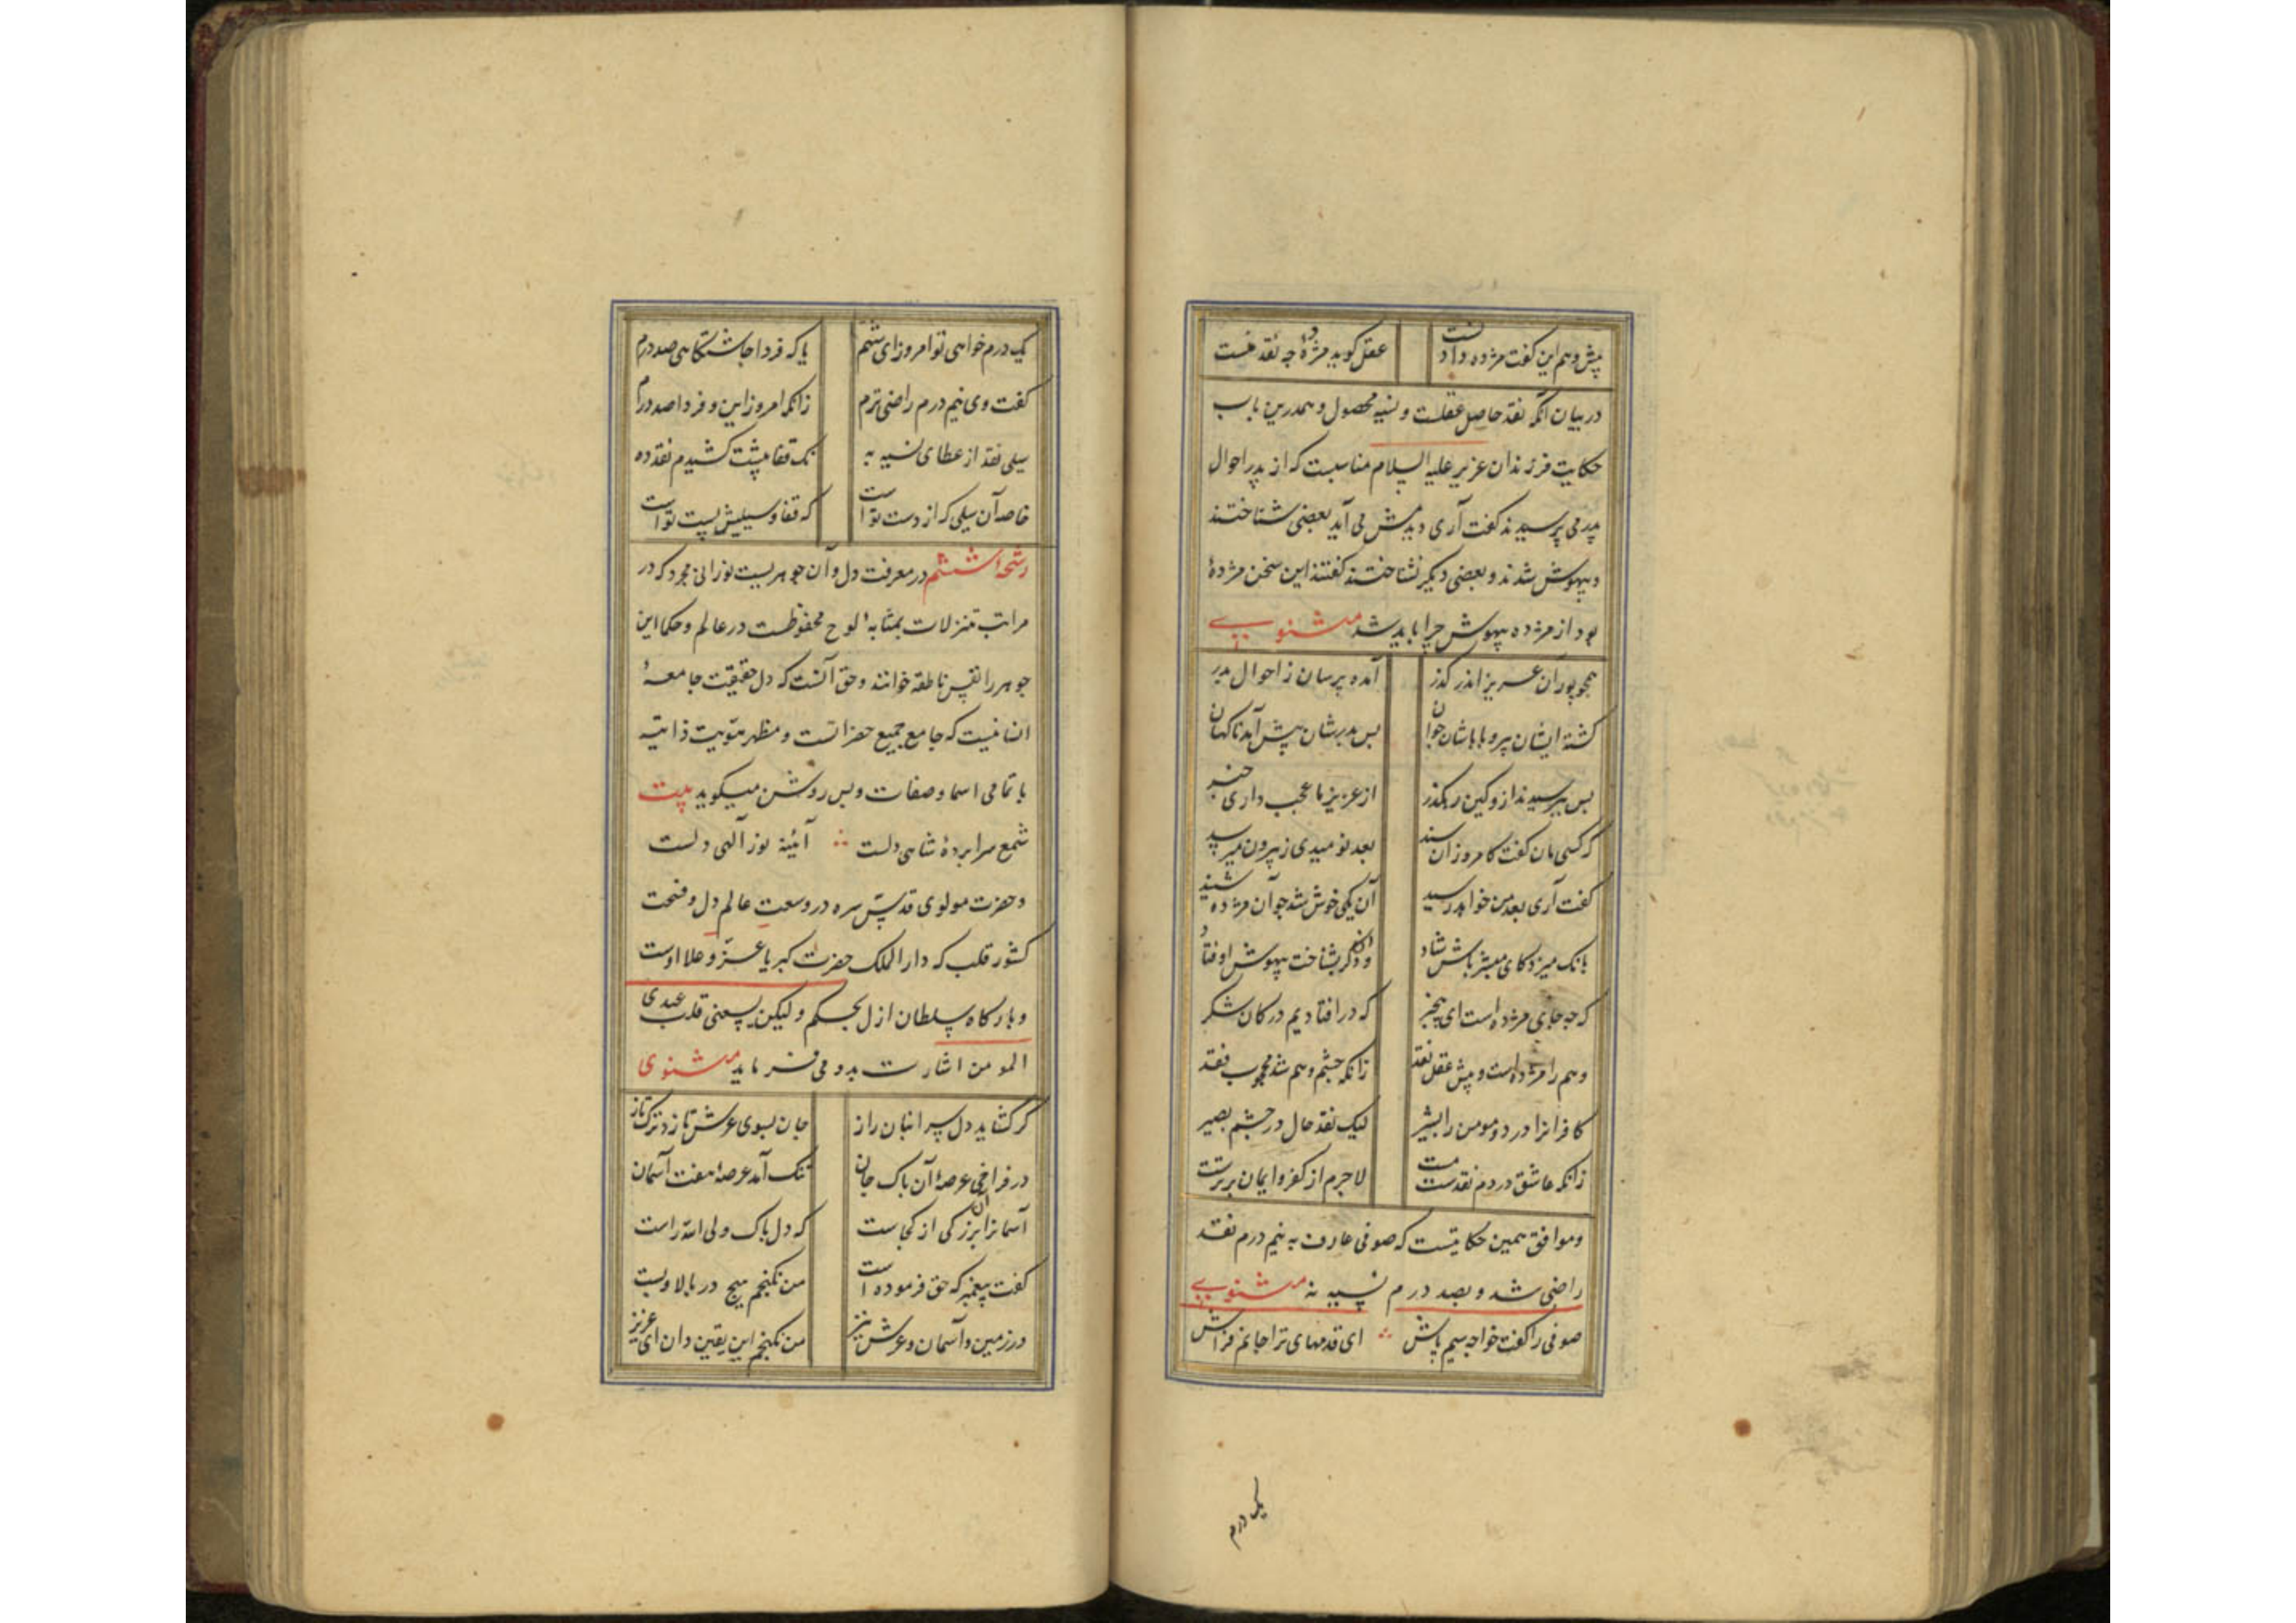 پیش وهم این گفت مژده دادنست عقل گوید مژده چه نقد منست
در بیان آنکه نقد حاصل عقلست و نسیه محصول و همدرین باب
حکایت فرزندان عزیر علیه السلام مناسبست که از پدر احوال
پدر می پرسیدند گفت آری دیدمش می آید بعضی شناختند
و بیهوش شدند و بعضی دیگر نشناختند گفتند این سخن مژدهٔ
بود از مژده بیهوش چرا باید شد مثنوی
همچو پوران عزیر اندر گذر آمده پرسان ز احوال پدر
گشته ایشان پیر و باباشان جوان پس پدرشان پیش آمد ناگهان
پس بپرسیدند ازو کین رهگذر از عزیر ما عجب داری خبر
که کسی مان گفت کامروز آن سند بعد نومیدی ز بیرون میرسد
گفت آری بعد من خواهد رسید آن یکی خوش شد چو آن مژده شنید
بانک میزد کای مبشر باش شاد وان دگر بشناخت بیهوش اوفتاد
که چه جای مژده است ای بیخبر که درافتادیم در کان شکر
وهم را مژده است و پیش عقل نقد زانکه چشم وهم شد محجوب فقد
کافرانرا درد و مومن را بشیر لیک نقد حال در چشم بصیر
زانکه عاشق در دم نقدست مست لاجرم از کفر و ایمان برترست
و موافق همین حکایتست که صوفی عارف به نیم درم نقد
راضی شد و بصد درم نسیه نه مثنوی
صوفی را گفت خواجه سیم پاش ای قدمهای ترا جانم فراش
یک درم
یک درم خواهی تو امروز ای شهم یا که فردا چاشتگاهی صد درم
گفت وی نیم درم راضی ترم زانکه امروز این و فردا صد درم
سیلی نقد از عطای نسیه به نک قفا پیشت کشیدم نقد ده
خاصه آن سیلی که از دست تو است که قفا و سیلیش پست تو است
رشحهٔ ششم در معرفت دل و آن جوهریست نورانی مجرد که در
مراتب تنزلات بمثابهٔ لوح محفوظست در عالم و حکما این
جوهر را نفس ناطقه خوانند و حق آنست که دل حقیقت جامعهٔ
انسانیست که جامع جمیع حضراتست و مظهر هویت ذاتیه
با تمامی اسما و صفات و بس روشن میگوید بیت
شمع سراپردهٔ شاهی دلست آئینه نور آلهی دلست
و حضرت مولوی قدس سره در وسعت عالم دل و فسحت
کشور قلب که دار الملک حضرت کبریا عز و علا اوست
و بارگاه سلطان ازل بحکم ولیکن یسعنی قلب عبدی
المومن اشارت بدو می فرماید مثنوی
گر گشاید دل سر انبان راز جان بسوی عرش تازد ترک تاز
در فراخی عرصهٔ آن پاک جان تنک آمد عرصهٔ هفت آسمان
آسمانرا این بزرگی از کجاست که دل پاک ولی الله راست
گفت پیغمبر که حق فرموده است من نگنجم هیچ در بالا و پست
در زمین و آسمان و عرش نیز من نگنجم این یقین دان ای عزیز